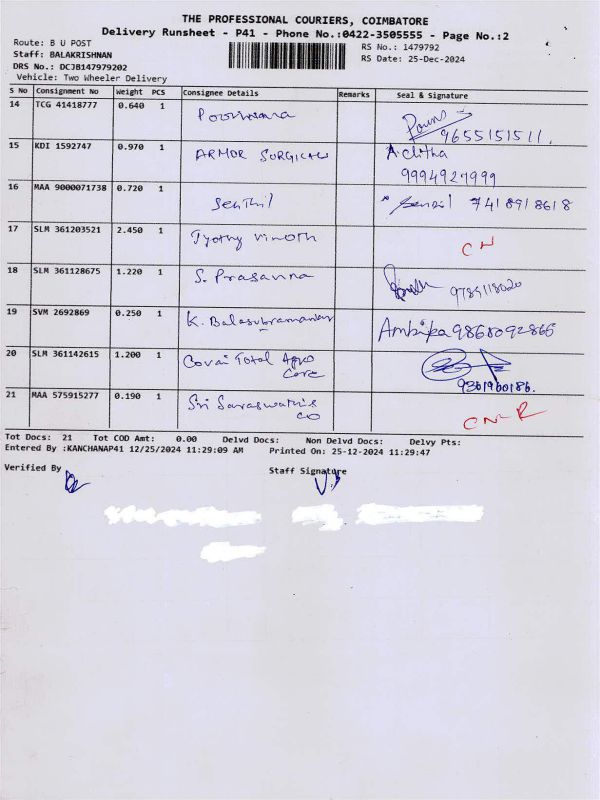 THE PROFESSIONAL COURIERS, COIMBATORE
Delivery Runsheet - P41 - Phone No.:0422-3505555 - Page No.:2
Route: B U POST
RS No.: 1479792
Staff: BALAKRISHNAN
RS Date: 25-Dec-2024
DRS No.: DCJB147979202
Vehicle: Two Wheeler Delivery
S No Consignment No Weight PCS Consignee Details Remarks Seal & Signature
14 TCG 41418777 0.640 1
9655151511.
15 KDI 1592747 0.970 1 ARMOR SURGICALS Aditha
9994927999
16 MAA 9000071738 0.720 1 Senthil 7418918618
17 SLM 361203521 2.450 1 Jyothy vinoth CN
18 SLM 361128675 1.220 1 S. Prasanna 9789118020
19 SVM 2692869 0.250 1 K. Balasubramaniam Ambika 9868092866
20 SLM 361142615 1.200 1 Covai Total Agro
Care 9361960186.
21 MAA 575915277 0.190 1 Sri Saraswathis
co CN-R
Tot Docs: 21 Tot COD Amt: 0.00 Delvd Docs: Non Delvd Docs: Delvy Pts:
Entered By :KANCHANAP41 12/25/2024 11:29:09 AM Printed On: 25-12-2024 11:29:47
Verified By Staff Signature